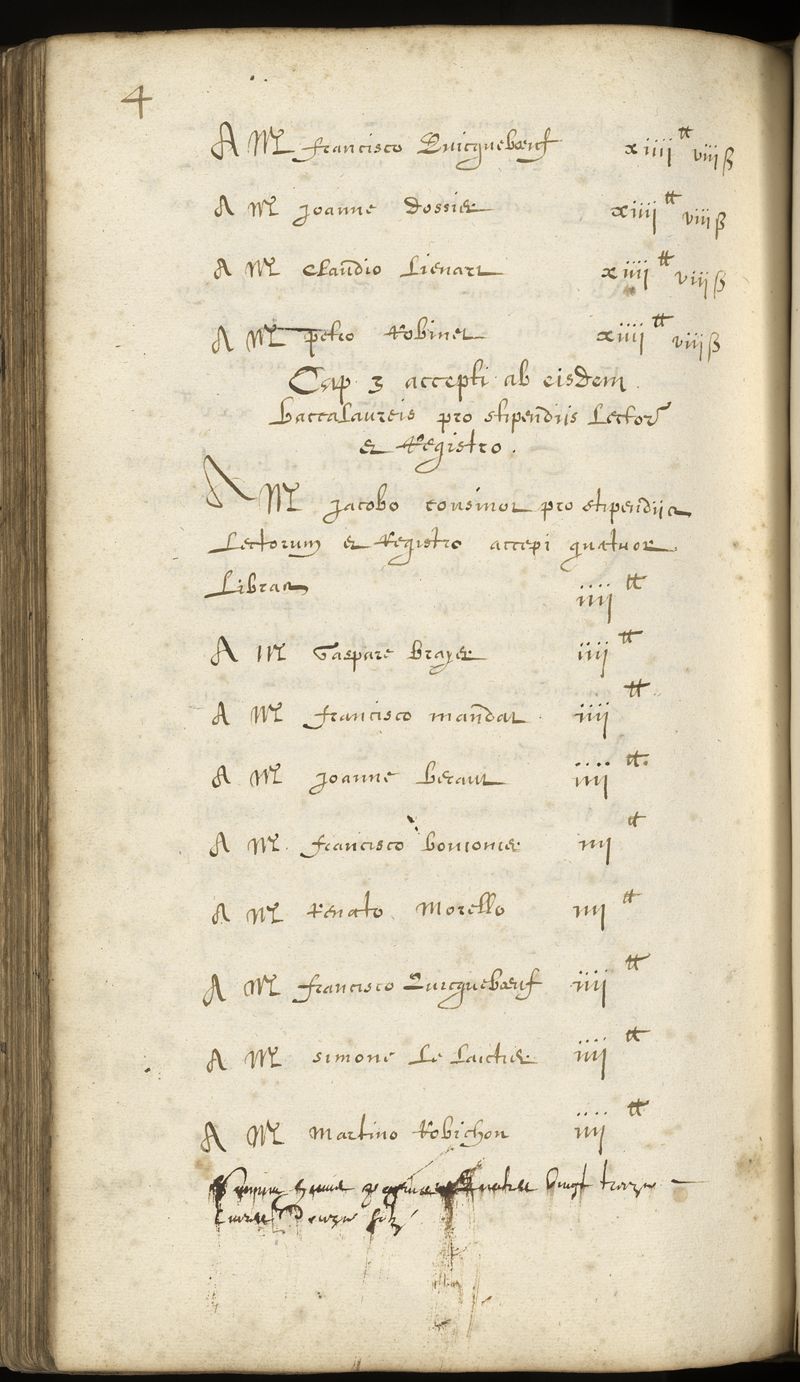 4
A Mᵉ francisco Quicquebœuf xiiii tt viii ß
A Mᵉ Joanne dossier xiiii tt viii ß
A Mᵉ Claudio Lienart xiiii tt viii ß
A Mᵉ petro Robinet xiiii tt viii ß
Cap 3 accepti ab eisdem
baccalaureis pro stipendiis Lector
et Registro.
A Mᵉ Jacobo cousinot pro stipendiis
Lectorum et Registro accepi quatuor
Libras iiii tt
A Mᵉ Gaspare brayer iiii tt
A Mᵉ francisco mandat iiii tt
A Mᵉ Joanne beraut iiii tt
A Mᵉ francisco iiii tt
A Mᵉ Renato Morello iiii tt
A Mᵉ francisco Quicquebœuf iiii tt
A Mᵉ simone Le Laictier iiii tt
A Mᵉ Martino Robichon iiii tt
quatre vingt treize